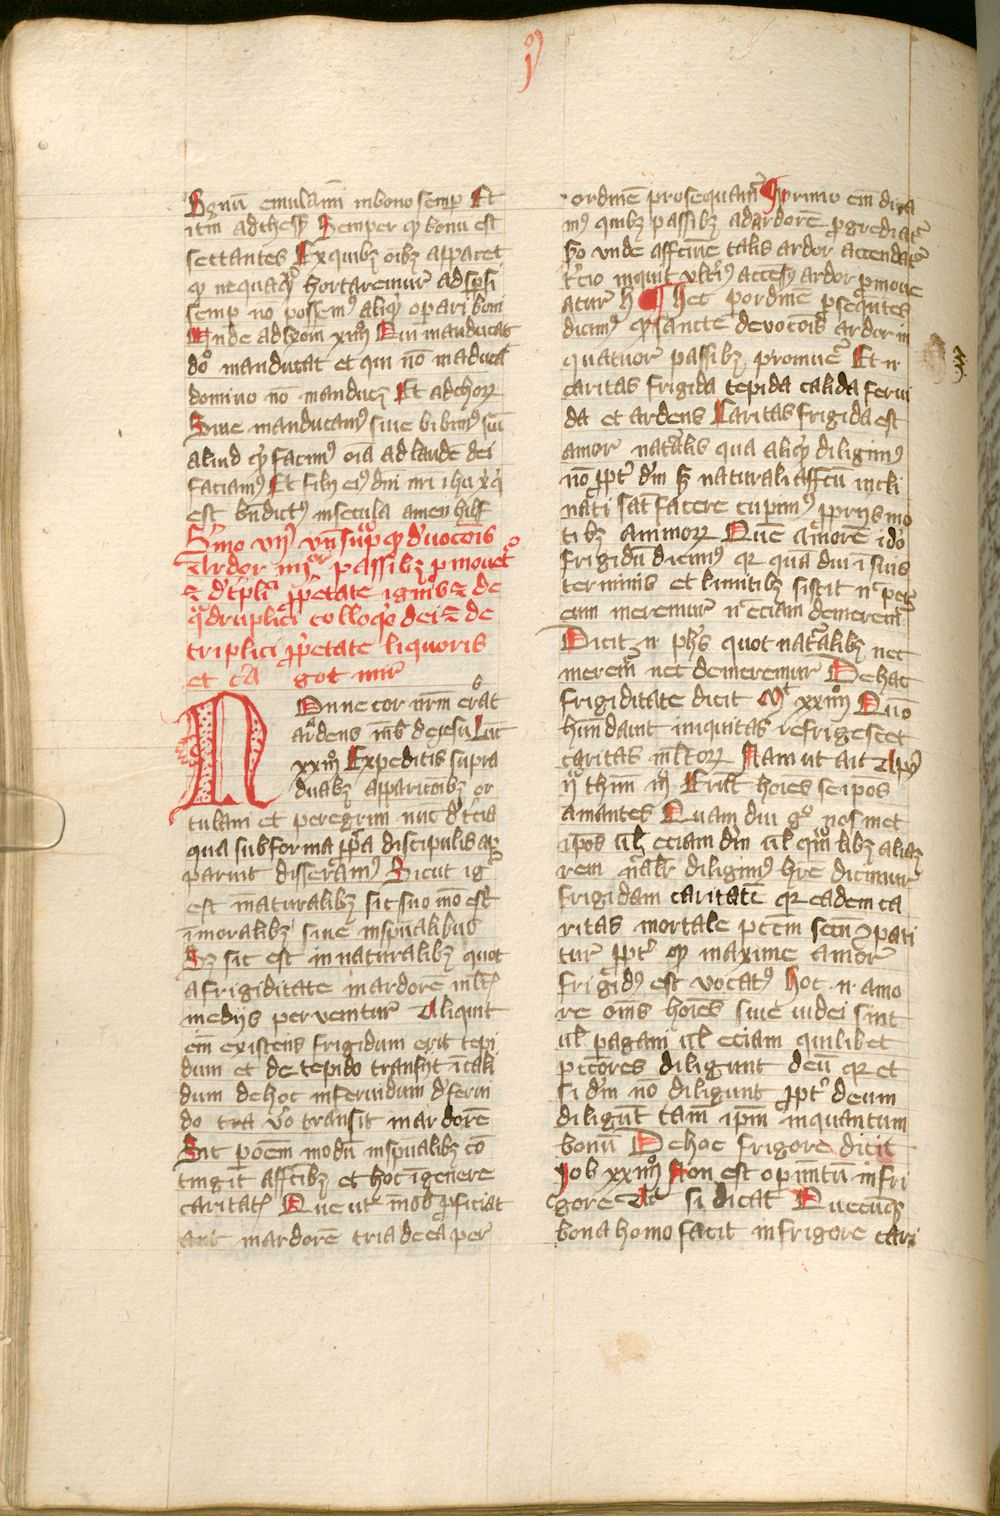 Bonū emulamī in bono semp Et
itm ad thess Semper qd bonū est
sectantes Ex quibz oibz apparet
qd nequaqm hortaremur ad ipsi
semp nō possemus aliqd opari boni
Unde ad Rom xiiijo Qui manducat
dno manducat et qui nō māducat
domino nō manducat Et ad chor
Siue manducamus siue bibimus siue
aliud qd facimus oīa ad laudē dei
faciamus Et filij eius dni nri ihu xpi
est bndictus in secula amen
Sermo vijus qd deuocōis
Ardor iiijor passibz pmouetur
et de tpli pprietate ignis et de
qdruplici colloqo dei et de
triplici pprietate liquoris
et ca got mir
Nonne cor nrm erat
ardens in nob de iesu Luc
xxiiijo Expeditis supra
duabz apparicōibz or
tulani et peregrini nūc de tercia
qua sub forma ppa discipulis ap
paruit disseramus Sicut ig
est in naturalibz sic suo mō est
in moralibz siue in spualibus
Sz sic est in naturalibz quot
a frigiditate in ardorē
medijs peruenitur Aliquit
em existens frigidum erit tepi
dum et de tepido transit in cali
dum de hoc in feruidum de ferui
do vero transit in ardorē
Sic p oēm modū in spualibz cō
tingit affectibz et hoc in genere
caritatis Que ut in nob pficiat
aut in ardorē tria de ea per
ordinē prosequamur Primo em dica
mus quibz passibz ad ardorē progrediatur
Scdo vnde affectiue talis ardor accendatur
Tercio inquit vlterius accēsus ardor pmoue
atur Hec p ordinē psequentes
dicimus qd sancte deuocōis ardor in
quatuor passibz promuetur Est n
caritas frigida tepida calida ferui
da et ardens Caritas frigida est
amor naturalis qua aliqd diligimus
nō ppter dm sz naturali affectu incli
nati satisfacere cupimus pprijs mo
tibz animor Quē amorē ideo
frigidū dicimus qr quādiu in suis
terminis et limitibz sistit nec per
eum meremur nec eciam demeremur
Dicit n phus quot naturalibz nec
meremur nec demeremur De hac
frigiditate dicit Mt xxiiijo Quo
habundauit iniquitas refrigescet
caritas multor Nam ut ait Apus
ij thim iij Erūt hoies seipos
amantes Quamdiu go nosmet
ipos ul eciam dm ul quoslibz aliaz
rem naturaliter diligimus habere dicimur
frigidam caritatē qr eadem ca
ritas mortale pctm secū opati
tur ppter qd maxime amor
frigidus est vocatus Hoc n amo
re oms hoies siue iudei sint
ul pagani ul eciam quilibet
pctores diligunt deū qr et
si dm nō diligunt ppter deum
diligūt tam ipm inquantum
bonū De hoc frigore dicit
Job xxiiijo Non est opimtū in fri
gore Ac si dicat Quecūqz
bona homo facit in frigore cari